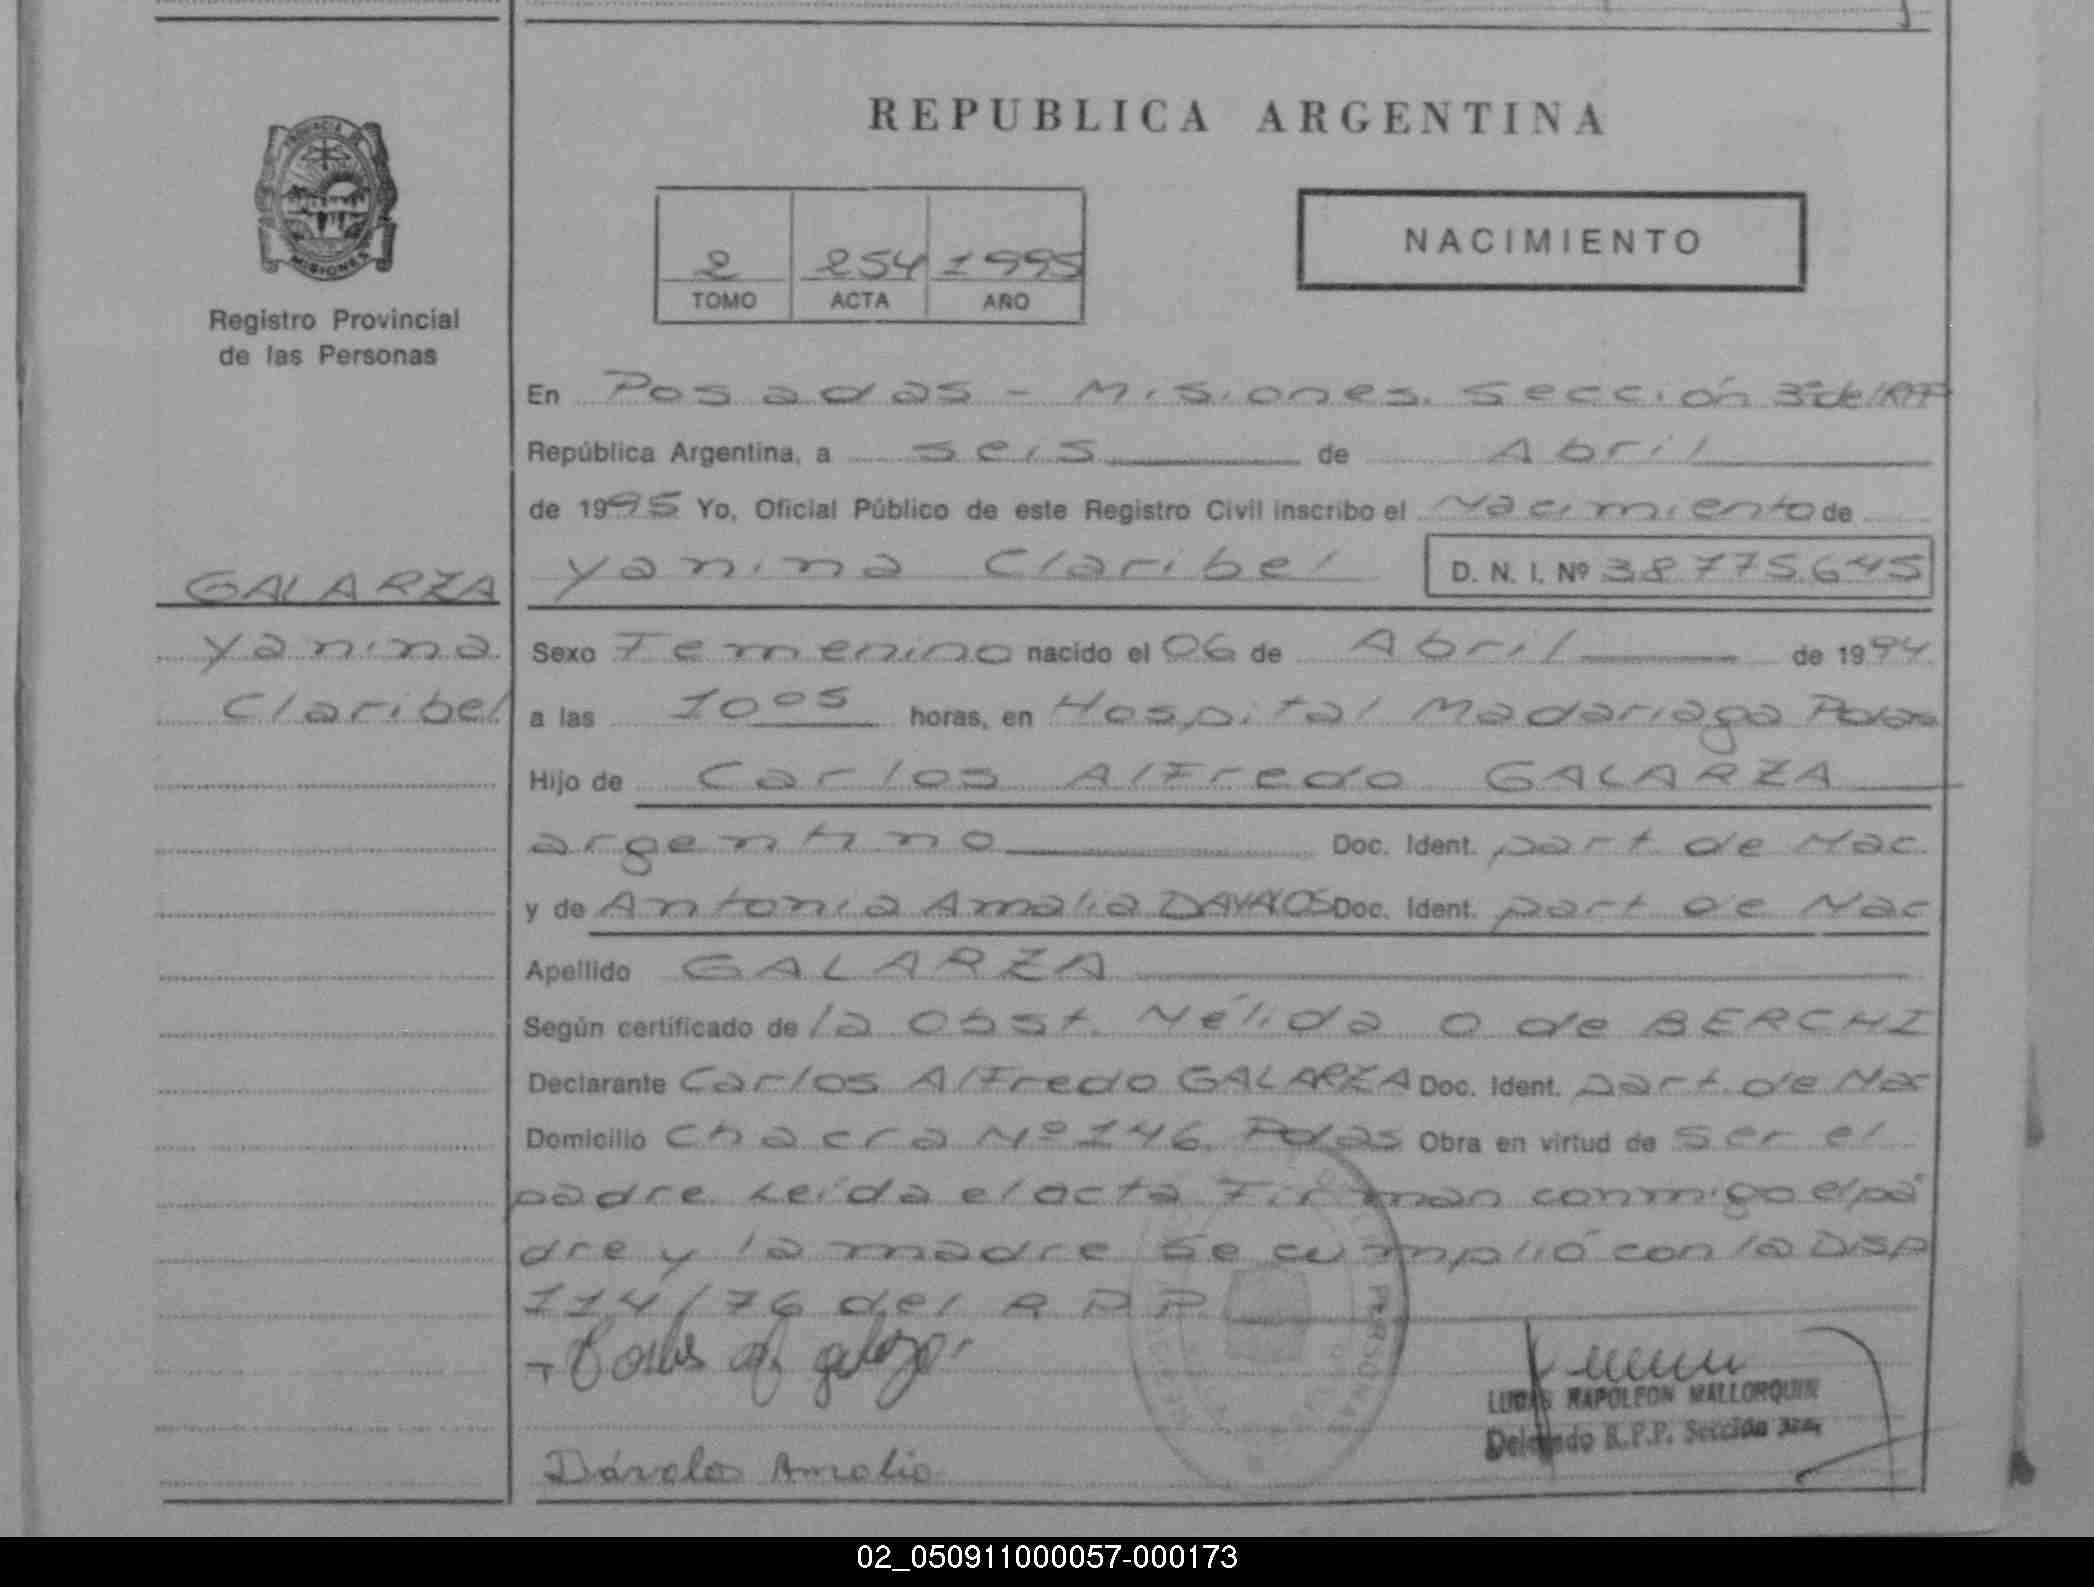 REPUBLICA ARGENTINA
PROVINCIA DE MISIONES
Registro Provincial
de las Personas
2 254 1995
TOMO ACTA AÑO
NACIMIENTO
En Posadas - Misiones. Sección 3ª del RPP
República Argentina, a seis de Abril
de 1995 Yo, Oficial Público de este Registro Civil inscribo el Nacimiento de
Yanina Claribel D. N. I. Nº 38775645
GALARZA
Yanina
Claribel
Sexo Femenino nacido el 06 de Abril de 1994
a las 10 05 horas, en Hospital Madariaga Pdas
Hijo de Carlos Alfredo GALARZA
argentino Doc. Ident. part de Nac.
y de Antonia Amalia DAVALOS Doc. Ident. part de Nac
Apellido GALARZA
Según certificado de la Obst. Nélida O de BERCHI
Declarante Carlos Alfredo GALARZA Doc. Ident. part de Nac
Domicilio Chacra Nº 146. Pdas Obra en virtud de ser el
padre. Leída el acta Firman conmigo el pa
dre y la madre Se cumplió con la Disp
114/76 del R P P.
Carlos A. galarza.
LUCAS NAPOLEON MALLORQUIN
Delegado R.P.P. Sección 3ra
Dávalos Amalia
PERSONAS
02_050911000057-000173